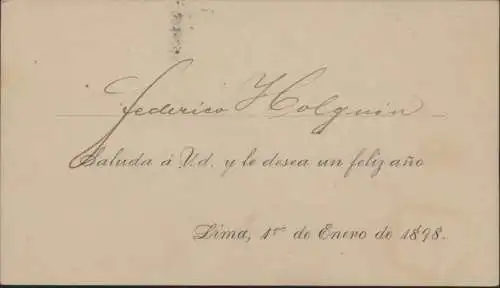 Federico Holguin
Saluda á V.d. y le desea un feliz año
Lima, 1ro de Enero de 1898.